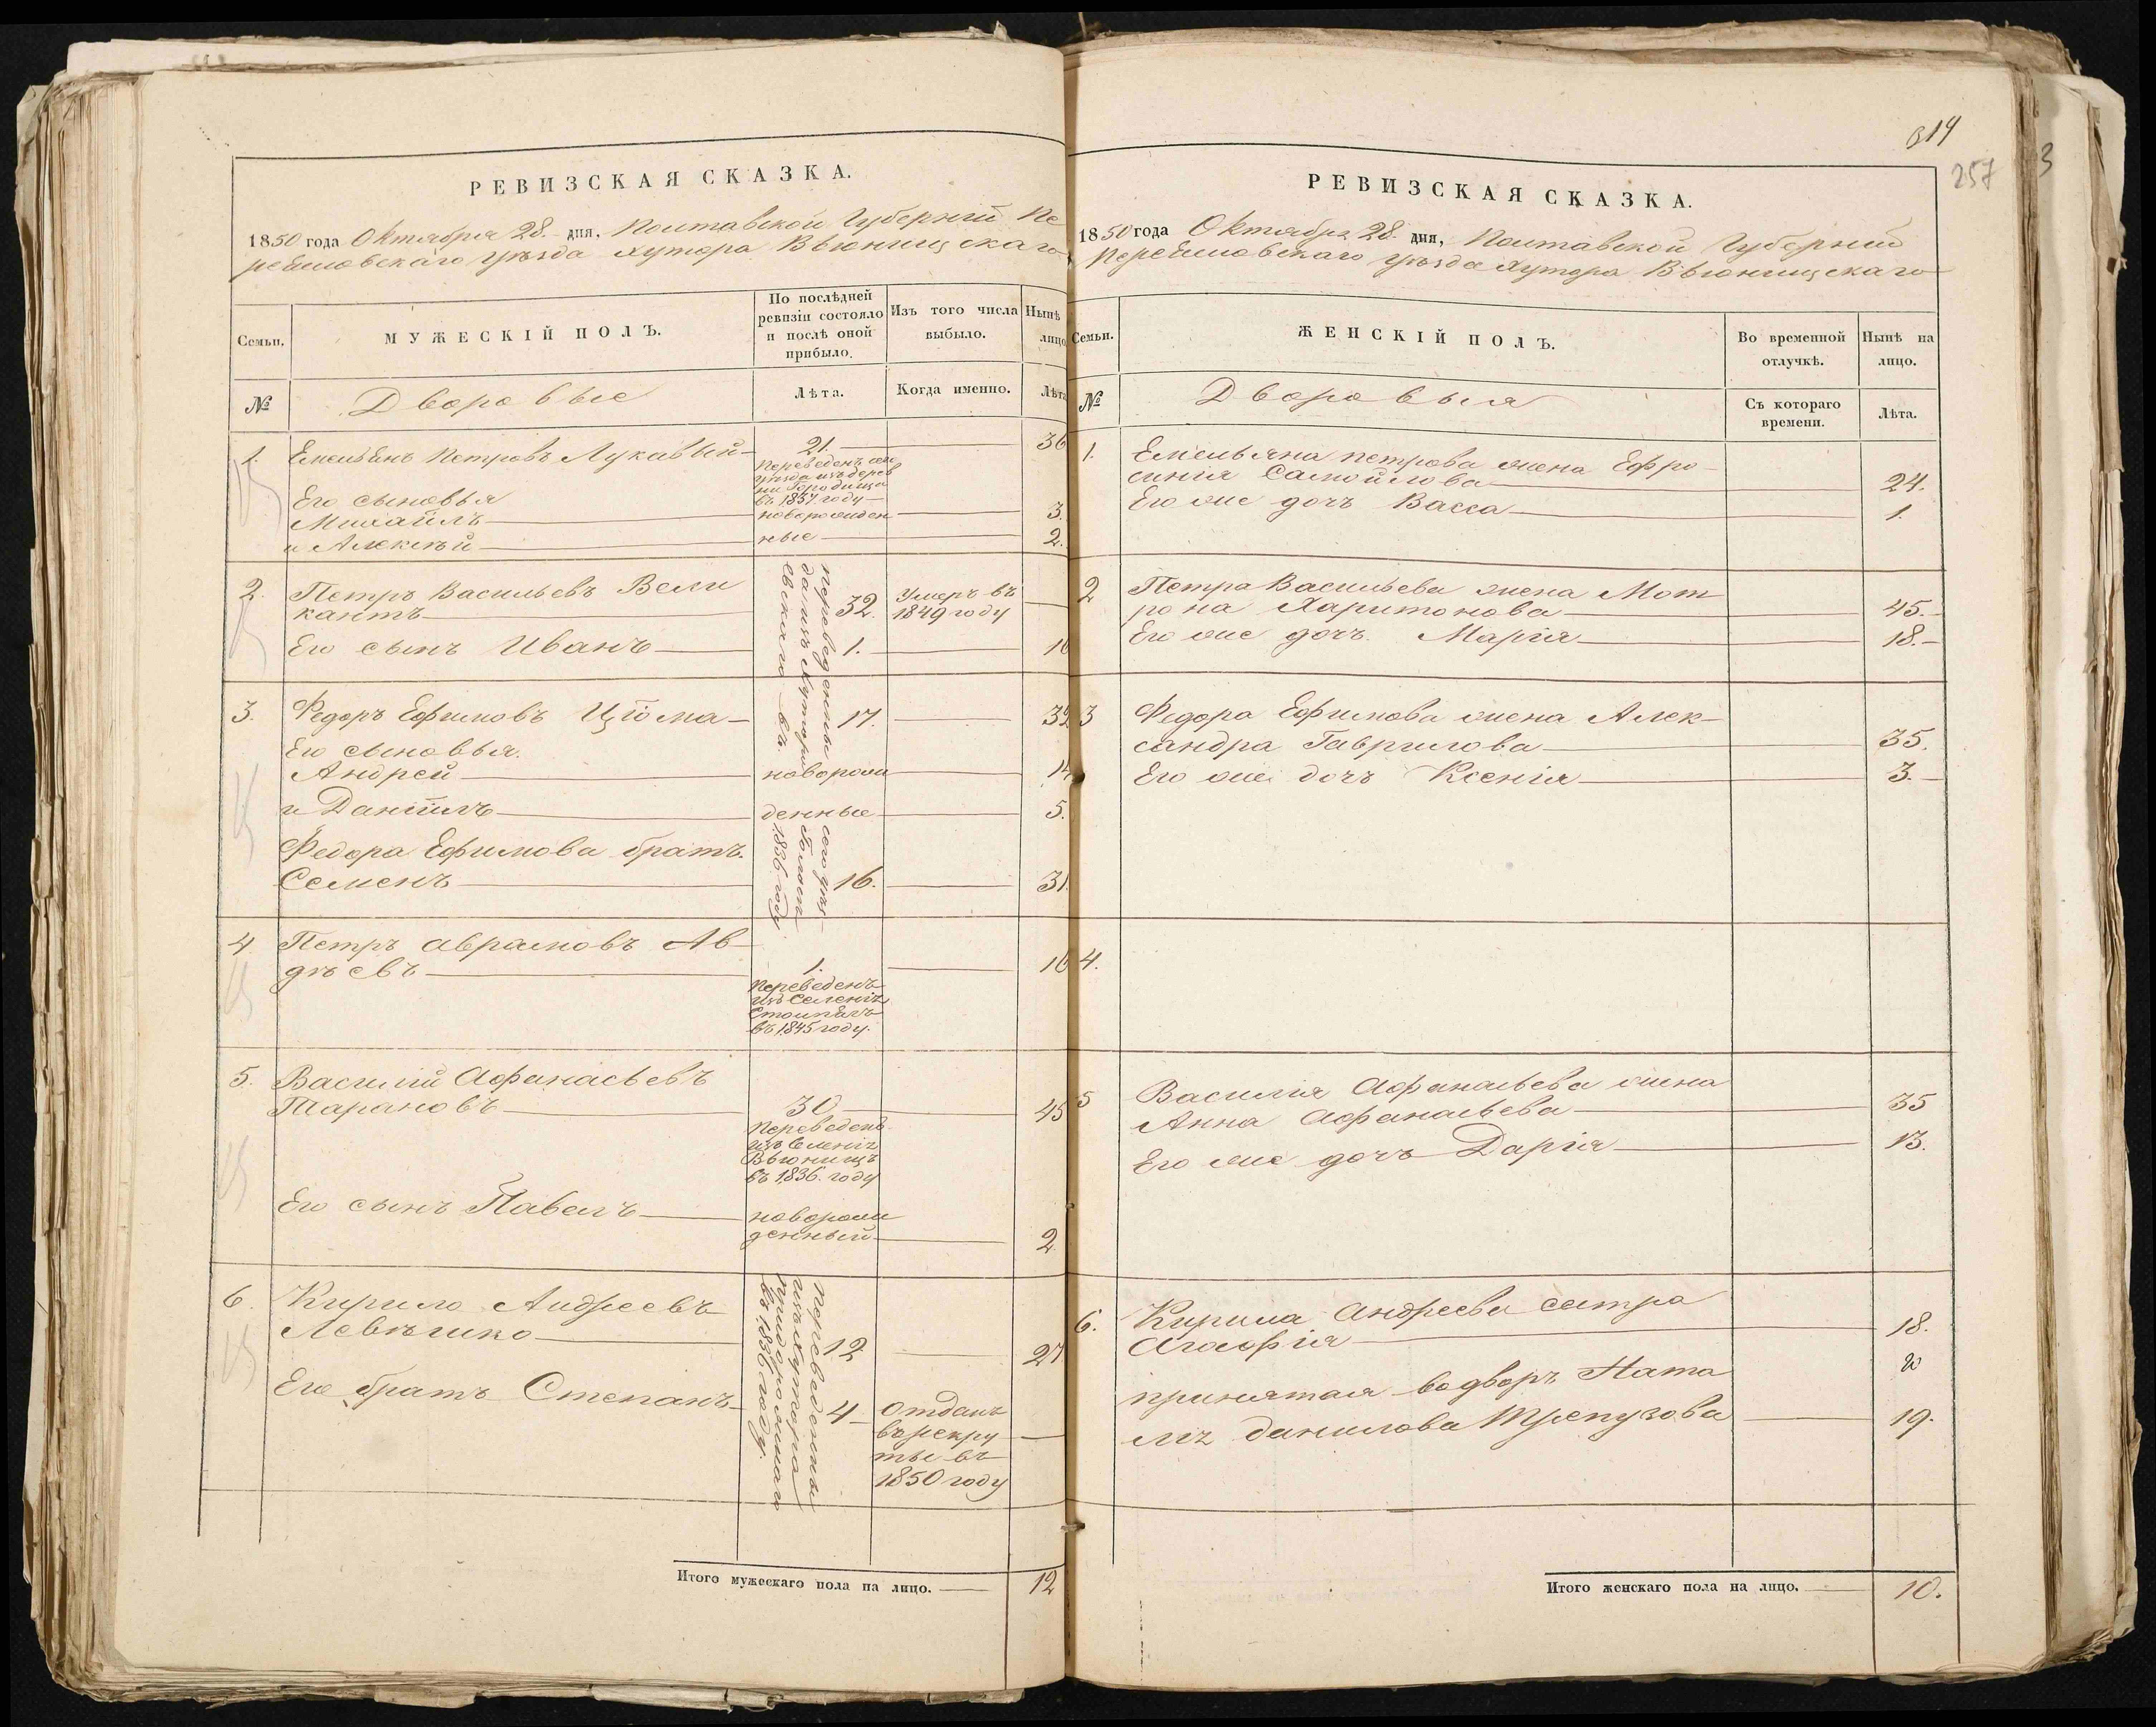 РЕВИЗСКАЯ СКАЗКА.
1850 года Октября 28. дня, Полтавской Губернiи Пе
реяславскаго уѣзда Хутора Вьюнищскаго
Семьи.
МУЖЕСКІЙ ПОЛЪ.
По послѣдней
ревизіи состояло
и послѣ оной
прибыло.
Изъ того числа
выбыло.
Нынѣ
лицо
№
Дворовые
Лѣта.
Когда именно.
Лѣта
1. Емельянъ Петровъ Лукавый 21. 36
Переведенъ
уѣзда изъ дерев
ни Городища
въ 1837 году
Его сыновья
Михаилъ новорожден 3.
и Алексѣй ные 2.
2. Петръ Васильевъ Вели
кантъ 32. Умеръ въ
1849 году
Его сынъ Иванъ 1. 16
3. Федоръ Ефимовъ Цiома 17. 32
Его сыновья.
Андрей новорож 14
и Данiилъ денные 5.
Федора Ефимова братъ.
Семенъ 16. 31.
переведенны сего уѣз
да изъ Хутора
евскаго въ 1836 году
4 Петръ Аврамовъ Ав
дѣевъ 1. 16
Переведенъ
изъ Селенiя
въ 1845 году.
5. Василiй Афанасьевъ
Тарановъ 30 45
Переведенъ
изъ Селенiя
Вьюнищъ
въ 1836. году
Его сынъ Павелъ новорож
денный 2
6. Кирило Андреевъ
12 27
Его братъ Степанъ 4 Отданъ
въ рекру
ты въ
1850 году
Переведенны
изъ Хутора
въ 1836 году.
Итого мужескаго пола на лицо. 12
314
257
3
РЕВИЗСКАЯ СКАЗКА.
1850 года Октября 28. дня, Полтавской Губернiи
Переяславскаго уѣзда Хутора Вьюнищскаго
Семьи.
ЖЕНСКІЙ ПОЛЪ.
Во временной
отлучкѣ.
Нынѣ на
лицо.
№
Дворовыя
Съ котораго
времени.
Лѣта.
1. Емельяна Петрова жена Ефро
синiя Самойлова 24.
Его же дочь Васса 1.
2 Петра Васильева жена Мот
рона Харитонова 45.
Его же дочь Марiя 18.
3 Федора Ефимова жена Алек
сандра Гаврилова 35.
Его же дочь Ксенiя 3.
4.
5 Василiя Афанасьева жена
Анна Афанасьева 35
Его же дочь Дарiя 13.
6. Кирила Андреева сестра
Агафiя 18.
принятая во дворъ Ната
лiя Данилова 19.
Итого женскаго пола на лицо. 10.